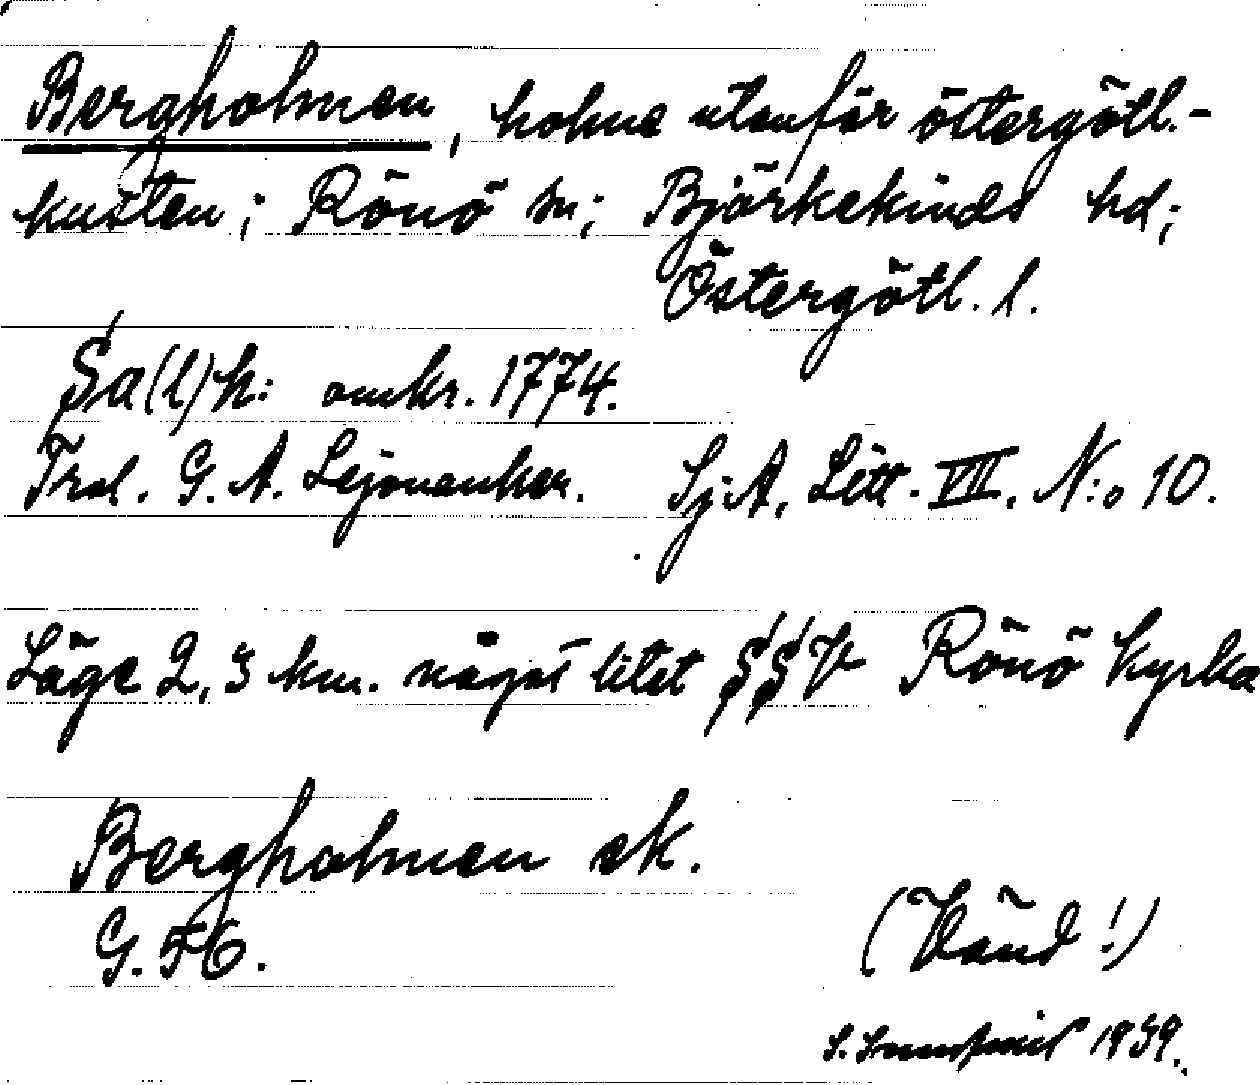 Bergholmen, holme utanför östergötl.-
kusten; Rönö sn; Björkekinds hd;
Östergötl. l.
Sa(l)h: omkr. 1774.
Trol. G. A. Lejonanker. SjA, Litt. VII. N:o 10.
Läge 2,3 km. något litet SSV Rönö kyrka
Bergholmen ek.
G. 56.
(Vänd!)
1939.